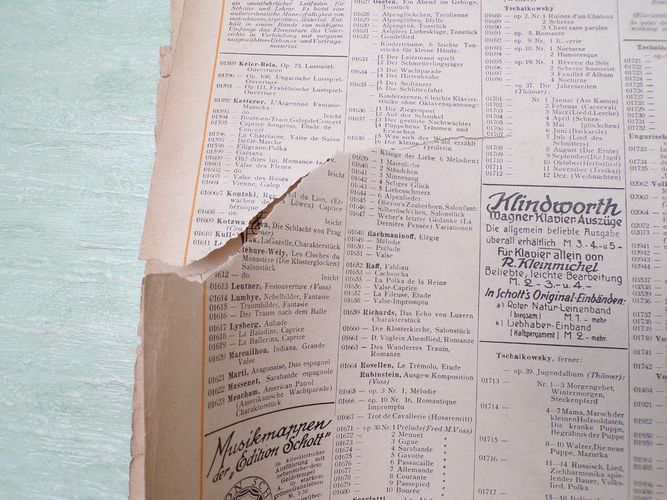 als unentbehrlicher Leitfaden für
Schüler und Lehrer. Es bietet eine
instruktivem, erprobtem Material. Ent-
hält in einem Bande von mäßigem
Umfange das Elementare des Unter-
material.
01589 Kéler-Béla, Op. 73, Lustspiel-
Ouverture
01590 — Op. 108, Ungarische Lustspiel-
Ouverture
01591 — Op. 111, Französische Lustspiel-
Ouverture
01592 Ketterer, L'Argentine Fantasie-
Mazurka
01593 — do. leicht
01594 — Boute-en-Train, Galop de Concert
01595 — Caprice hongrois, Etude de
Concert
01596 — La Châtelaine, Valse de Salon
01597 — Défilé-Marche
01598 — Filigrane-Polka
01599 — Gaëtana
01600 — Oh! dites lui, Romance
01601 — Valse des Fleurs
01602 — do. leicht
01603 — Valse des Roses
01604 — Vienne, Galop
01606/7 Kontski, Réveil du Lion, (Er-
wachen des Löwen) Caprice
héroïque
01608 — do. leicht
01609 Kotzwara, Die Schlacht von Prag
01610 Kull
01611 La Gazelle, Charakterstück
Lefébure-Wély, Les Cloches du
Monastère (Die Klosterglocken)
Salonstück
01612 — do. leicht
01613 Lentner, Festouverture (Voss)
01614 Lumbye, Nebelbilder, Fantasie
01615 — Traumbilder, Fantasie
01616 — Der Traum nach dem Balle
01617 Lysberg, Aubade
01618 — La Baladine, Caprice
01619 — La Ballerina, Caprice
01620 Marcailhou, Indiana, Grande
Valse
01621 Marti, Aragonaise, Duo espagnol
01622 Massenet, Sarabande espagnole
01623 Meacham, American Patrol
(Amerikanische Wachtparade)
Charakterstück
Musikmappen
der „Edition Schott“
in künstlerischer
Ausführung mit
Goldstempel
01627 Oesten, Ein Abend im Gebirge,
Fantasie
01628 — Alpenglöckchen, Tyrolienne
01629 — Alpenglühen, Idylle
01631 — Aelplers Liebesklage, Tonstück
01632 — Gondellied
Kinderträume, 6 leichte Ton-
stücke für kleine Hände:
01633 {1 Der Leiermann spielt
{2 Der Schmetterlingsjäger
01634 {3 Die Wachtparade
{4 Der Hirtenknabe
01635 {5 Der Seiltänzer
{6 Die Schlittenfahrt
Kinderszenen, 6 leichte Klavier-
stücke ohne Oktavenspannung:
01636 {1 Die Ziegenpost
{2 Auf der Schaukel
01637 {3 Der gestörte Nachtwächter
{4 Püppchens Träumen und
Erwachen
01638
Klänge der Liebe 6 Melodien:
01639 — 1 Maienliebe
01640 — 2 Ständchen
01641 — 3 Minnesang
01642 — 4 Seliges Glück
01643 — 5 Liebesschmerz
01644 — 6 Alpenlied
01645 — Oberon's Zauberhorn, Salonfant.
01646 — Silberfischchen, Salonstück
01647 — Weber's letzter Gedanke (La
Dernière Pensée) Variationen
01648 Rachmaninoff, Elegie
01649 — Mélodie
01650 — Prélude
01651 — Valse
01652 Raff, Fabliau
01653 — Cachoucha
01654 — La Polka de la Reine
01655 — Valse-Caprice
01656 — La Fileuse, Etude
01658 — Valse-Impromptu
01659 Richards, Das Echo von Luzern
Charakterstück
01660 — Die Klosterkirche, Salonstück
01661 — D. Vöglein Abendlied, Romanze
01663 — Des Wanderers Traum,
Romanze
01664 Rosellen, Le Trémolo, Etude
Rubinstein, Ausgew. Komposition
(Voss)
01665 — op. 3 Nr. 1, Mélodie
01666 — op. 10 Nr. 16, Romantique
Impromptu
01667 — Trot de Cavallerie (Husarenritt)
01671 — op. 38 Nr. 1 Prélude (Fred M. Voss)
01672 — 2 Menuet
01673 — 3 Gigue
01674 — 4 Sarabande
01675 — 5 Gavotte
01676 — 6 Passacaille
01677 — 7 Allemande
01678 — 8 Courante
01679 — 9 Passepied
01680 — 10 Bourée
Tschaikowsky
01688 — op. 2. Nr. 1 Ruines d'un Chateau
01689 — 2 Scherzo
01690 — 3 Chant sans paroles
01691 — op. 5. Romance
01693 — op. 10. Nr. 1 Nocturne
01694 — 2 Humoresque
01695 — op. 19. Nr. 1 Rêverie du Soir
01696 — 2 Scherzo humoristique
01697 — 3 Feuillet d'Album
01698 — 4 Nocturne
op 37. Die Jahreszeiten
(Thümer):
01701 — Nr. 1 Januar (Am Kamin)
01702 — 2 Februar (Carneval)
01703 — 3 März (Lied d. Lerche)
01704 — 4 April (Schnee-
01705 — 5 Mai
01706 — 6 Juni (Barkarole)
01707 — 7 Juli (Lied des
Schnitters)
01708 — 8 August (Die Ernte)
01709 — 9 September (Die Jagd)
01710 — 10 Oktober (Herbstlied)
01711 — 11 November (Troika)
01712 — 12 Dez. (Weihnachten)
Klindworth
Wagner Klavier Auszüge
Die allgemein beliebte Ausgabe
überall erhältlich M 3.-4.-5.-
Für Klavier allein von
R. Kleinmichel
Beliebte, leichte Bearbeitung
M. 2.- 3.- u. 4.-
In Schott's Original-Einbänden:
a) Roter Natur-Leinenband
(biegsam) M 1.- mehr
b) Liebhaber-Einband
(Halbpergament) M 2.- mehr.
Tschaikowsky, ferner:
op. 39. Jugendalbum (Thümer):
01713 — Nr. 1—3 Morgengebet,
Wintermorgen,
Steckenpferd
01714 — 4—7 Mama, Marsch der
kleinen Holzsoldaten,
Die kranke Puppe,
Begräbnis der Puppe
01715 — 8—10 Walzer, Die neue
Puppe, Mazurka
01716 — 11—14 Russisch. Lied,
Ziehharmonika spie-
lender Bauer, Volks-
lied, Polka